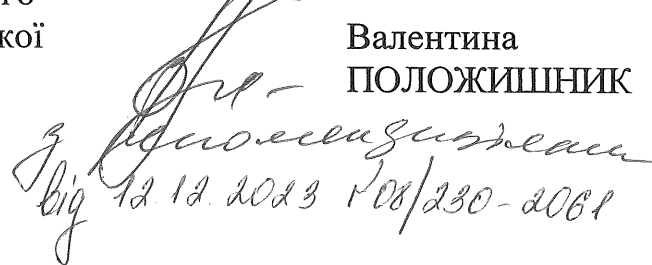 го
кої
Валентина
ПОЛОЖИШНИК
з
від 12.12.2023 №08/230-2061